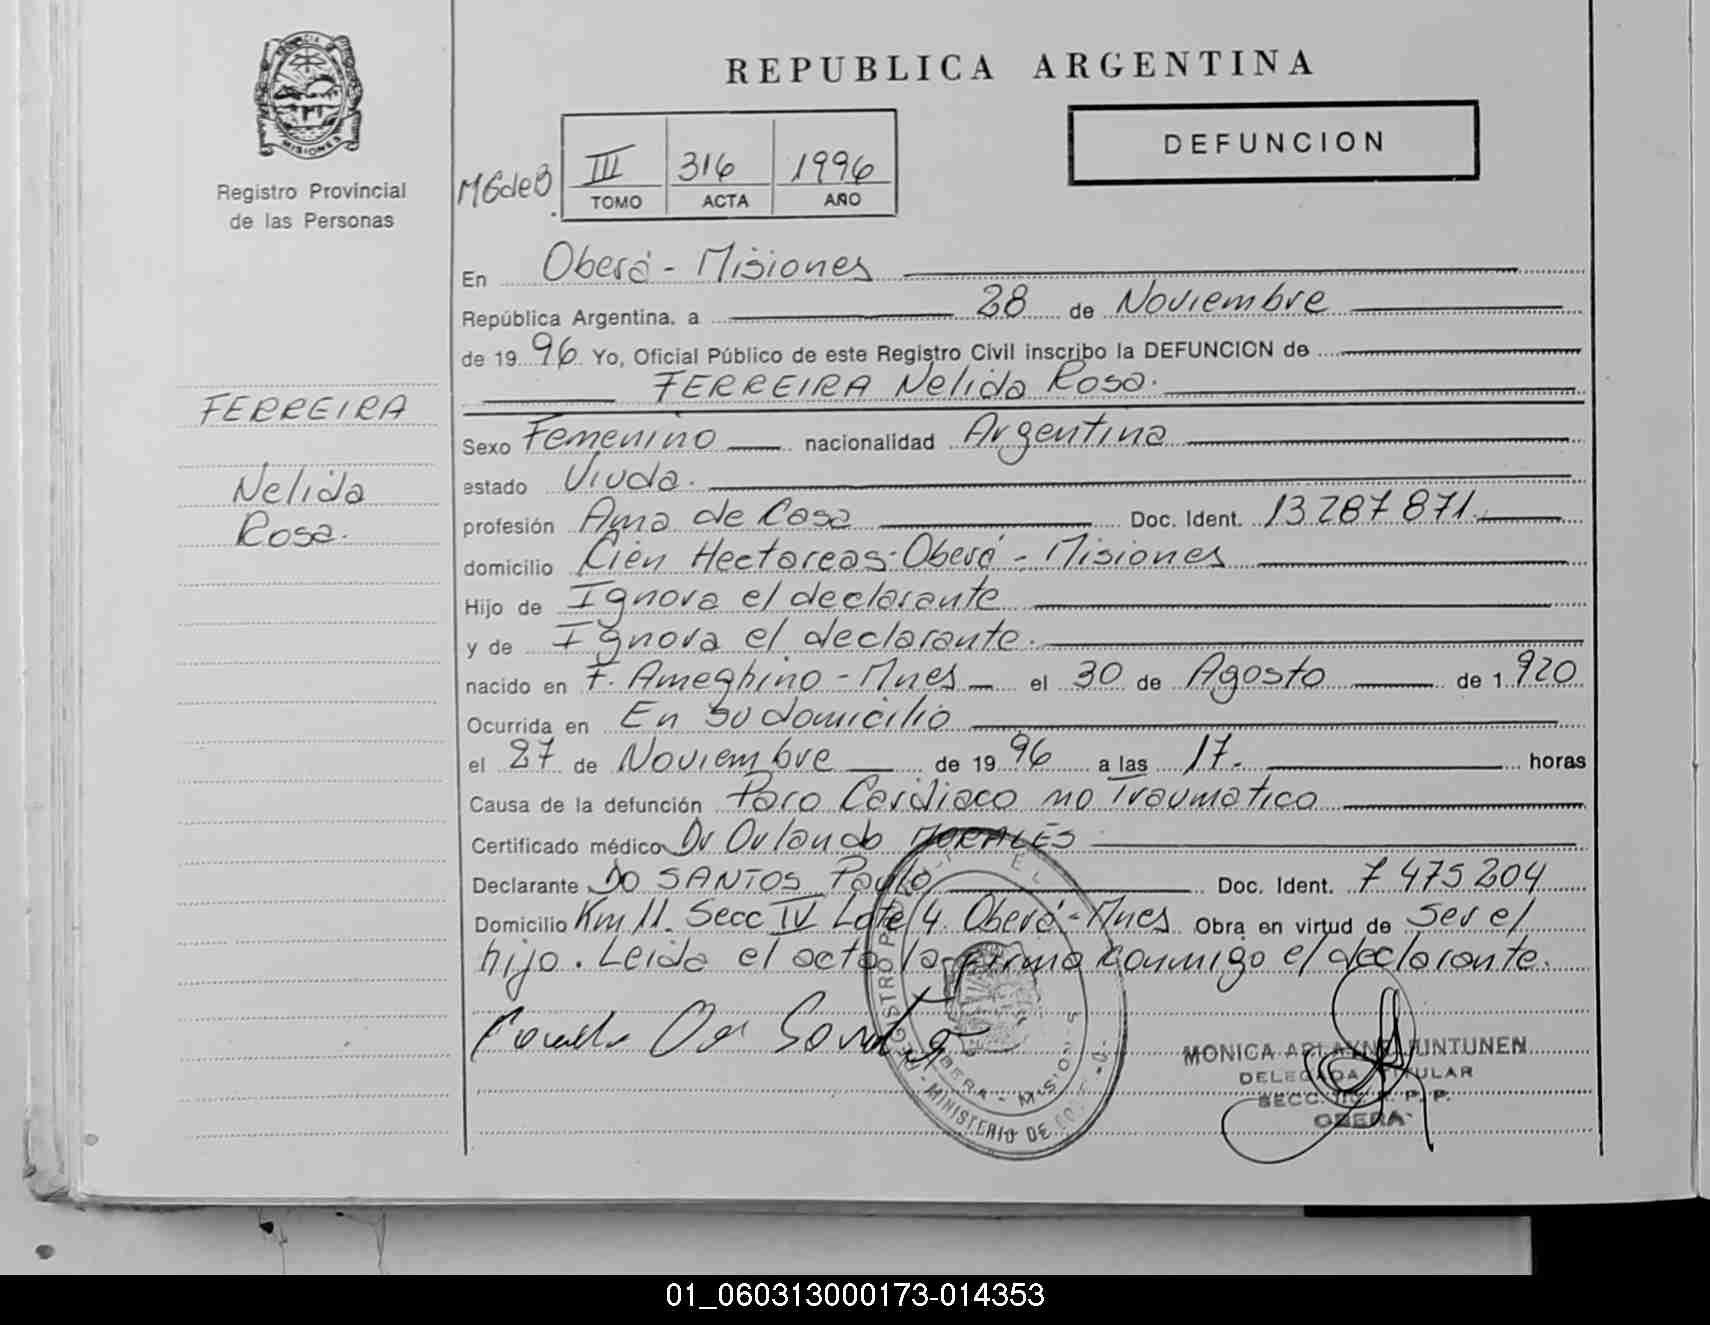 REPUBLICA ARGENTINA
PROVINCIA DE
MISIONES
Registro Provincial
de las Personas
DEFUNCION
MGdeB.
III 316 1996
TOMO ACTA AÑO
En Oberá - Misiones
República Argentina, a 28 de Noviembre
de 19 96 Yo, Oficial Público de este Registro Civil inscribo la DEFUNCION de
FERREIRA Nelida Rosa.
FERREIRA
Nelida
Rosa.
Sexo Femenino nacionalidad Argentina
estado Viuda.
profesión Ama de Casa Doc. Ident. 13287871.
domicilio Cién Hectareas - Oberá - Misiones
Hijo de Ignora el declarante
y de Ignora el declarante.
nacido en F. Ameghino - Mnes el 30 de Agosto de 1.920
Ocurrida en En su domicilio
el 27 de Noviembre de 19 96 a las 17. horas
Causa de la defunción Paro Cardiaco no Traumatico
Certificado médico Dr Orlando MORALES
Declarante Do SANTOS Paulo Doc. Ident. 7475204
Domicilio Km 11. Secc IV Lote 4. Oberá - Mnes Obra en virtud de ser el
hijo. Leida el acta la firma conmigo el declarante.
MONICA JUNTUNEN
DELEGADA TITULAR
SECC. R. P. P.
OBERA
REGISTRO
OBERA - MISIONES
MINISTERIO DE
01_060313000173-014353